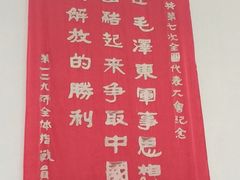 第七次全國代表大會紀念
毛澤東軍事思想
結起来争取中國
解放的勝利
第一二九師全体指戰員